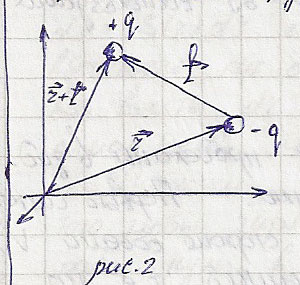 +q
r⃗+l⃗
l⃗
r⃗
-q
рис.2